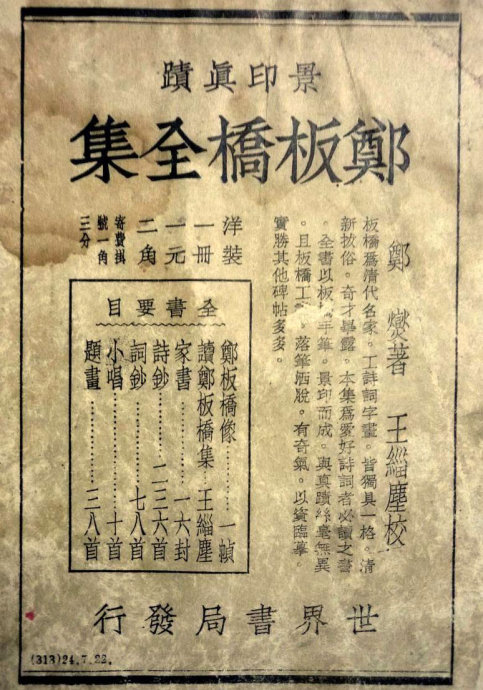 景印眞蹟
鄭板橋全集
鄭燮著　王緇塵校
板橋爲清代名家。工詩詞字畫。皆獨具一格。清
新拔俗。奇才畢露。本集爲愛好詩詞者必讀之書
。全書以板橋手筆。景印而成。與真蹟絲毫無異
。且板橋工　。落筆洒脫。有奇氣。以資臨摹
實勝其他碑帖多多。
洋裝
一冊
一元
二角
寄費掛
號一角
三分
全書要目
鄭板橋像………一幀
讀鄭板橋集…王緇塵
家書…………一六封
詩鈔………二三六首
詞鈔…………七八首
小唱…………十首
題畫…………三八首
世界書局發行
(313)24.7.22.